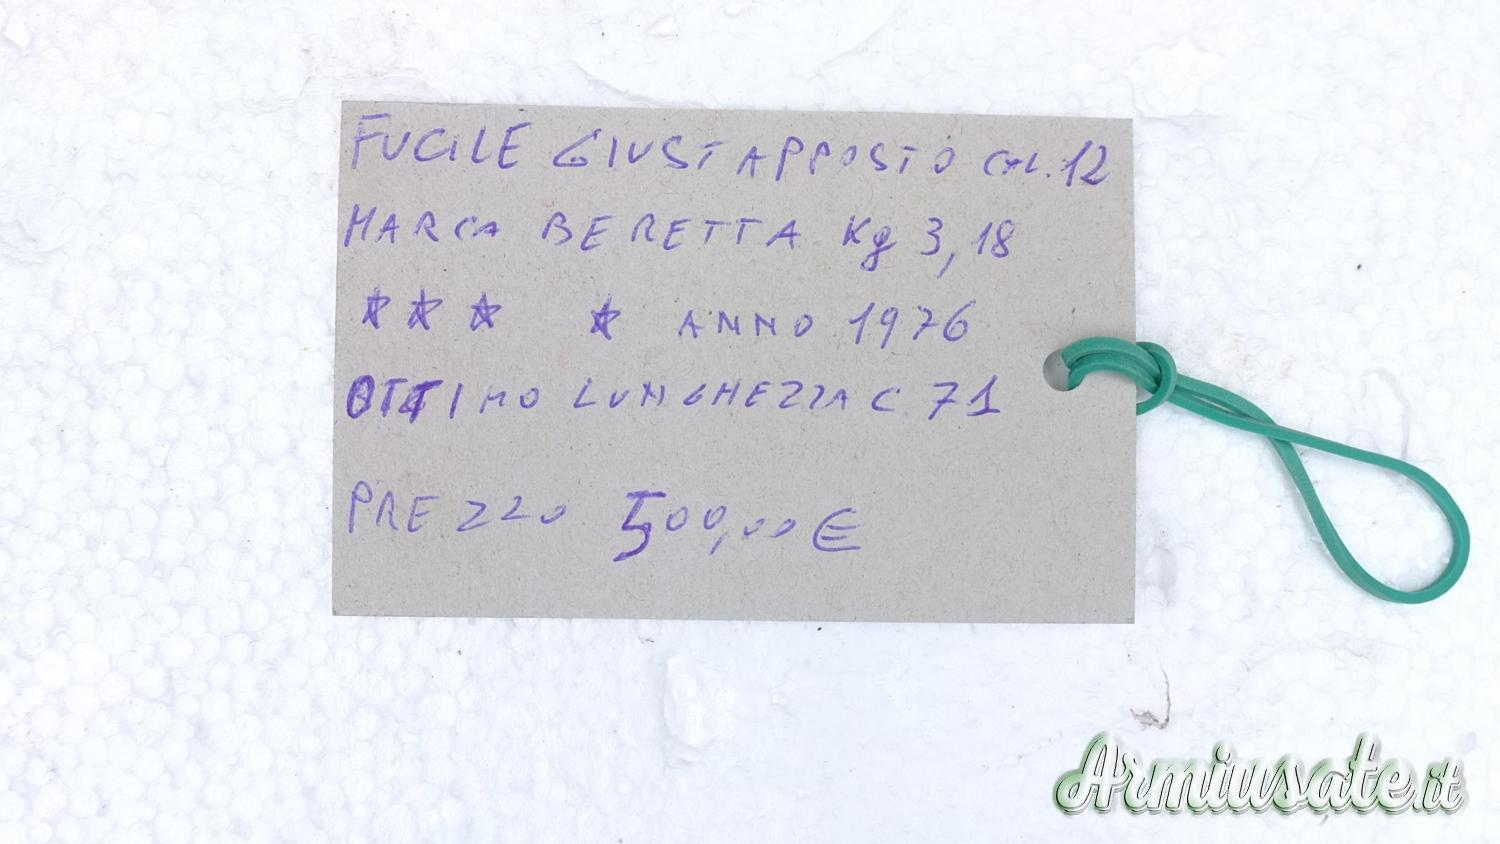 FUCILE GIUSTAPPOSTO CAL. 12
MARCA BERETTA Kg 3,18
★★★ ★ ANNO 1976
OTTIMO LUNGHEZZA C 71
PREZZO 500,00 €
Armiusate.it